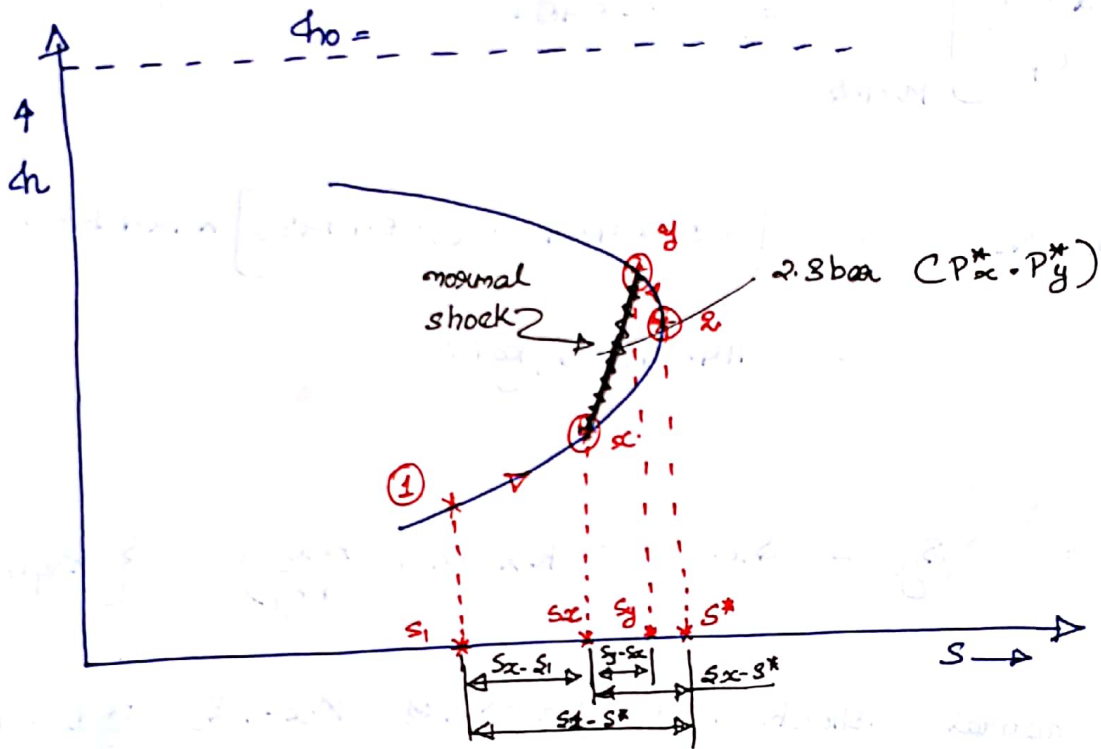 ho =
h
y
normal
shock
2.3 bar (P*x . P*y)
2
x
1
s1
sx
sy
s*
S
sx-s1
sy-sx
sx-s*
s1-s*